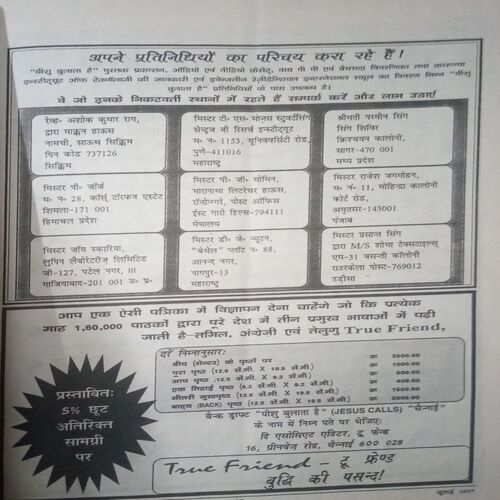 अपने प्रतिनिधियों का परिचय करा रहे हैं।
"यीशु बुलाता है" पुस्तक प्रकाशन, ऑडियो एवं वीडियो कैसेट, वाय पी पी एवं बैयपाद विवरणिका तथा कारुण्या
इन्स्टीट्यूट ऑफ टेक्नॉलाजी की जानकारी एवं इवेन्जलीन रेज़ीडेन्शियल इन्टरनेशनल स्कूल का विवरण निम्न "यीशु
बुलाता है" प्रतिनिधियों के पास उपलब्ध है।
वे जो इनके निकटवर्ती स्थानों में रहते हैं सम्पर्क करें और लाभ उठाएं!
रेव्ह- अशोक कुमार राय,
द्वारा माकून हाऊस
नामची, साऊथ सिक्किम
पिन कोड 737126
सिक्किम
मिस्टर टी- एस- मोज़स स्टुवर्टसिंग
सेन्ट्रल बी रिसर्च इन्स्टीट्यूट
म- न- 1153, यूनिवर्सिटी रोड,
पुणे-411016
महाराष्ट्र
श्रीमती परवीन सिंग
सिंग शिविर
क्रिश्चयन कालोनी,
सागर-470 001
मध्य प्रदेश
मिस्टर पी- जॉर्ज
म- न- 28, कॉस् टॉरफन एस्टेट
शिमला-171 001
हिमाचल प्रदेश
मिस्टर पी- जी- मोमिन,
मारानाथा लिटरेचर हाऊस,
रॉन्ग्रेन्गरे, पोस्ट ऑफिस
ईस्ट गारो हिल्स-794111
मेघालय
मिस्टर राजेश जगमोहन,
म- न- 11, मोहिन्द्रा कालोनी
कोर्ट रोड,
अमृतसर-143001
पंजाब
मिस्टर जॉय स्कारिया,
लुपिन लैबोरेटरीज लिमिटिड
जी-127, पटेल नगर, III
गाजियाबाद-201 001 उ- प्र-
मिस्टर डी- जे- न्यूटन,
"बेथेल" प्लॉट न- 88,
आनन्द नगर,
नागपुर-13
महाराष्ट्र
मिस्टर प्रसान्त सिंग
द्वारा M/S शोभा टेक्सटाइल्स
एम-31 बसन्ती कॉलोनी
राउरकेला पोस्ट-769012
उड़ीसा
आप एक ऐसी पत्रिका में विज्ञापन देना चाहेंगे जो कि प्रत्येक
माह 1,60,000 पाठकों द्वारा पूरे देश में तीन प्रमुख भाषाओं में पढ़ी
जाती है-तमिल, अंग्रेज़ी एवं तेलुगु True Friend,
दरें निम्नानुसार:
बीच (सेन्टर) के पृष्ठों पर रू 2500.00
पूरा पृष्ठ (12.5 सें.मी. X 19.5 सें.मी.) रू 1000.00
आध पृष्ठ (12.5 सें.मी. X 9.2 सें.मी.) रू 600.00
एक तिहाई पृष्ठ (6.2 सें.मी. X 9.2 सें.मी.) रू 400.00
भीतरी मुखपृष्ठ (12.5 सें.मी. X 19.5 सें.मी.) रू 1500.00
बाहय (BACK) पृष्ठ (12.5 सें.मी. X 19.5 सें.मी.) रू 2000.00
प्रस्तावित:
5% छूट
अतिरिक्त
सामग्री
पर
बैन्क ड्राफ्ट "यीशु बुलाता है" (JESUS CALLS) "चैन्नाई"
के नाम में निम्न पते पर भेजिए:
दि एसोसिएट एडिटर, ट्रू फेन्ड
16, ग्रीनवेज़ रोड, चैन्नाई 600 028
True Friend - ट्रू फ्रेण्ड
बुद्धि की पसन्द!
जुलाई 1997